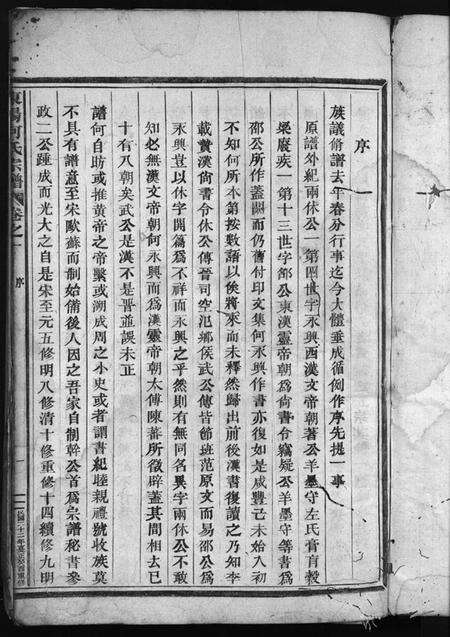 序
族議脩譜去年春分行事迄今大體垂成循例作序先提一事
原譜外紀兩休公一第四世字永興西漢文帝朝著公羊墨守左氏膏肓穀
梁廢疾一第十三世字邵公東漢靈帝朝爲尙書令竊疑公羊墨守等書爲
邵公所作蓋闕而仍舊付印文集何永興作書亦復如是咸豐己未始入初
不知何所本第按數語以俟將來而未釋然歸出前後漢書復讀之乃知李
載贄漢尙書令休公傳晉司空汜鄉侯武公傳皆節班范原文而易邵公爲
永興豈以休字闕爲爲不祥而永興之乎然則有無同名異字兩休公不敢
知必無漢文帝朝何永興而爲漢靈帝朝太傅陳蕃所徵辟蓋其間相去已
十有八朝矣武公是漢不是晉並誤未正
譜何自昉或推黃帝之帝繫或溯成周之小史或者謂書紀睦親禮號收族莫
不具有譜意至宋歐蘇而制始備後人因之吾家自制幹公首爲宗譜秘書參
政二公踵成而光大之自是宋至元五修明八修清十修重修十四續修九明
東陽何氏宗譜 卷之一 序 一